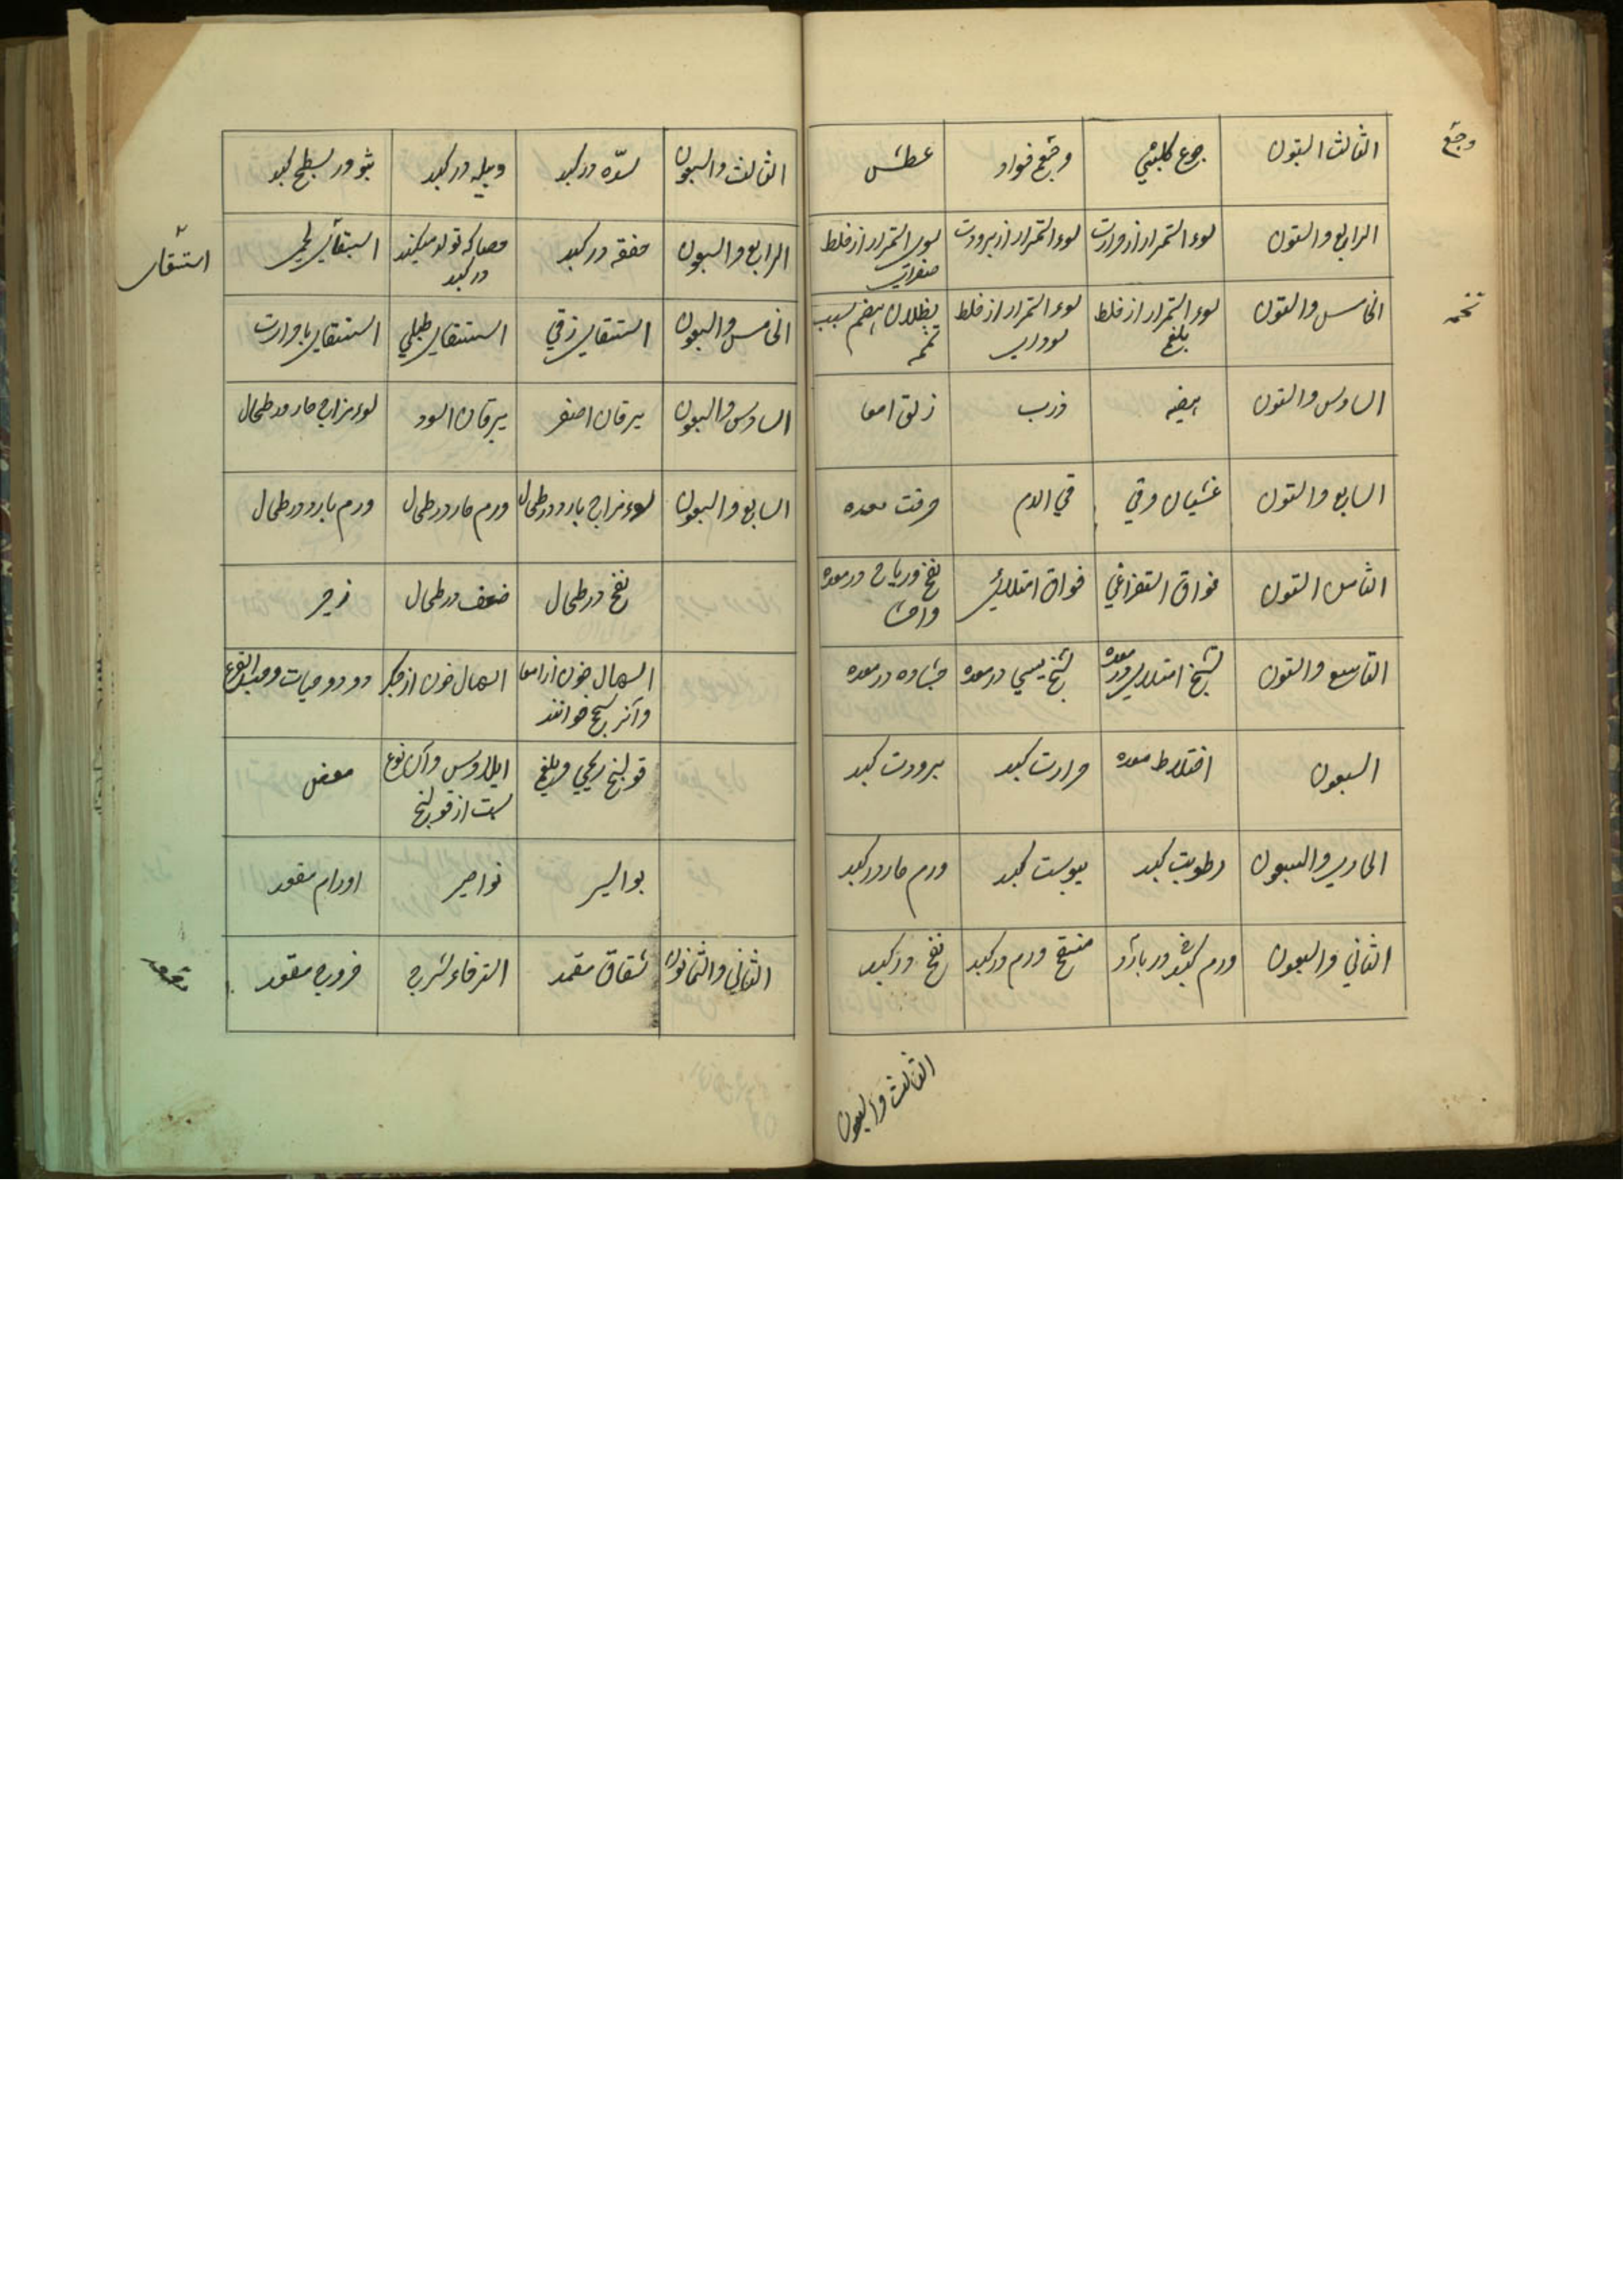 وجع
الثالث الستون
جوع کلبی
وجع فواد
عطش
الرابع والستون
سوء استمرار از حرارت
سوء استمرار از برودت
سوء استمرار از خلط
صفراوی
تخمه
الخامس والستون
سوء استمرار از خلط
بلغم
سوء استمرار از خلط
سوداوی
بطلان هضم بسبب
تخمه
السادس والستون
هیضه
ذرب
زلق امعا
السابع والستون
غثیان وقی
قی الدم
حرقت معده
الثامن الستون
فواق استفراغی
فواق امتلائی
نفخ و ریاح در معده
التاسع والستون
تشنج امتلایی در
معده
تشنج یبسی در معده
در معده
السبعون
اختلاط معده
حرارت کبد
برودت کبد
الحادی والسبعون
رطوبت کبد
یبوست کبد
ورم حار در کبد
الثانی والسبعون
ورم کبد
ورم در کبد
نفخ در کبد
الثالث والسبعون
الثالث والسبعون
سدّه در کبد
دبیله در کبد
بثور در سطح کبد
الرابع والسبعون
خفقه در کبد
حصاکه تولد میکند
در کبد
استسقای لحمی
استسقا
الخامس والسبعون
استسقای زقی
استسقای طبلی
استسقای با حرارت
السادس والسبعون
یرقان اصفر
یرقان اسود
سوء مزاج حار در طحال
السابع والسبعون
سوء مزاج بارد در طحال
ورم حار در طحال
ورم بارد در طحال
نفخ در طحال
ضعف در طحال
زحیر
اسهال خون از امعا
و آنرا سحج خوانند
اسهال خون از جگر
دود و حیات و حب القرع
قولنج ریحی و بلغمی
ایلاوس و آن نوع
یست از قولنج
مغص
بواسیر
نواصیر
اورام مقعد
الثانی والثمانون
شقاق مقعد
استرخاء شرج
خروج مقعد